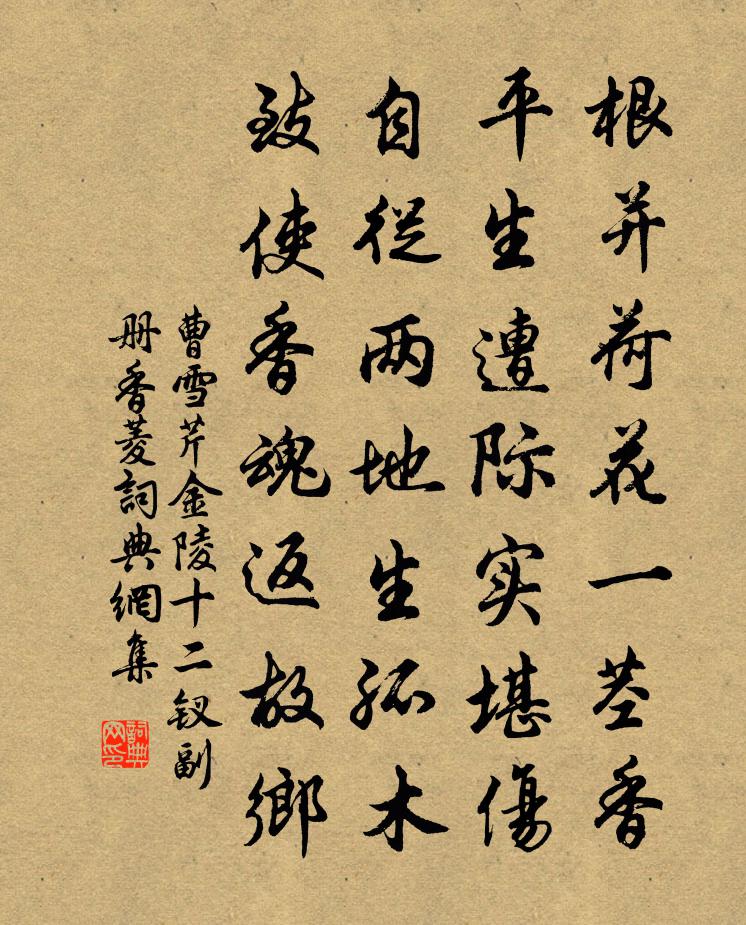 根并荷花一茎香
平生遭际实堪傷
自從两地生孤木
致使香魂返故鄉
曹雪芹金陵十二钗副
册香菱詞典網集
詞典
网印